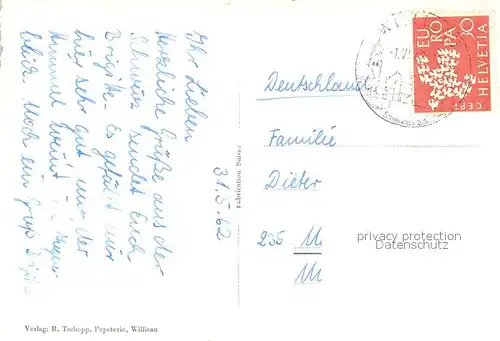 Ihr Lieben
Herzliche Grüße aus der
Schweiz sendet Euch
Brigitte. Es gefällt mir
hier sehr gut nur der
Himmel weint
blick. Noch ein Gruß
31.5.62
Fabrication Suisse
Deutschland
Familie
Dieter
235 M
M
privacy protection
Datenschutz
EU
RO
PA
30
HELVETIA
CEPT
Verlag: R. Tschopp, Papeterie, Willisau